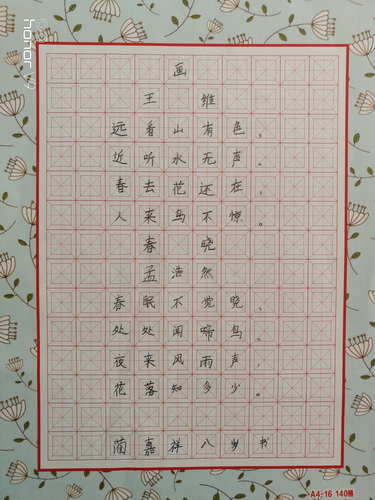 画
王维
远看山有色。
近听水无声。
春去花还在，
人来鸟不惊。
春晓
孟浩然
春眠不觉晓，
处处闻啼鸟。
夜来风雨声，
花落知多少。
蔺嘉祥八岁书
A4-16 140格
honor V9